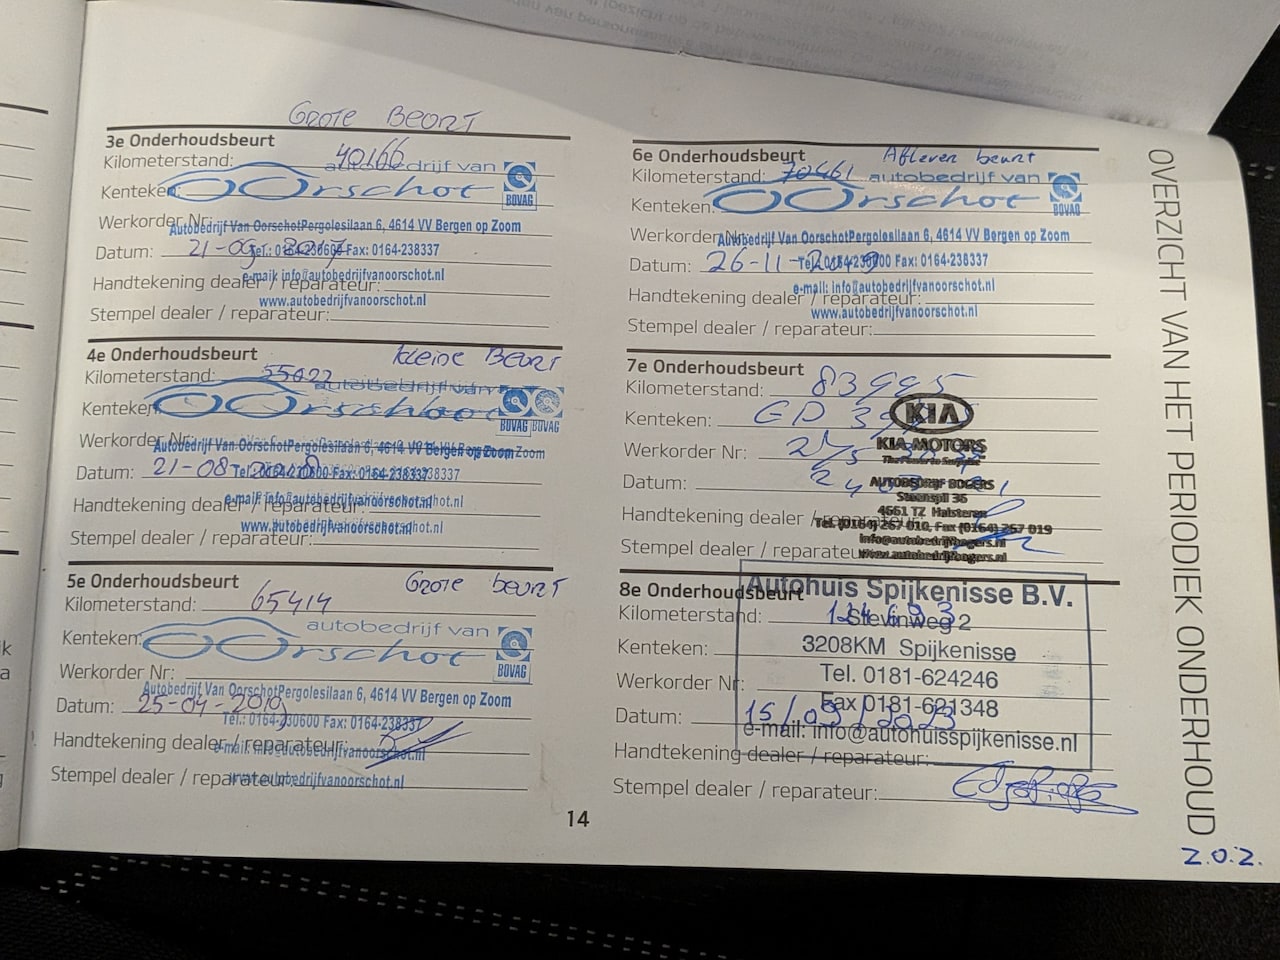 Grote Beurt
3e Onderhoudsbeurt
Kilometerstand: 40166
autobedrijf van
OOrschot
BOVAG
Kenteken:
Werkorder Nr:
Autobedrijf Van Oorschot Pergolesilaan 6, 4614 VV Bergen op Zoom
Datum: 21-09-2017
Tel.: 0164-230600 Fax: 0164-238337
e-mail: info@autobedrijfvanoorschot.nl
Handtekening dealer / reparateur:
www.autobedrijfvanoorschot.nl
Stempel dealer / reparateur:
4e Onderhoudsbeurt
kleine Beurt
Kilometerstand: 55022
autobedrijf van
OOrschot
BOVAG BOVAG
Kenteken:
Werkorder Nr:
Autobedrijf Van Oorschot Pergolesilaan 6, 4614 VV Bergen op Zoom
Datum: 21-08-2018
Tel.: 0164-230600 Fax: 0164-238337
e-mail: info@autobedrijfvanoorschot.nl
Handtekening dealer / reparateur:
www.autobedrijfvanoorschot.nl
Stempel dealer / reparateur:
5e Onderhoudsbeurt
Grote beurt
Kilometerstand: 65414
autobedrijf van
OOrschot
BOVAG
Kenteken:
Werkorder Nr:
Autobedrijf Van Oorschot Pergolesilaan 6, 4614 VV Bergen op Zoom
Datum: 25-04-2019
Tel.: 0164-230600 Fax: 0164-238337
Handtekening dealer / reparateur:
e-mail: info@autobedrijfvanoorschot.nl
Stempel dealer / reparateur:
www.autobedrijfvanoorschot.nl
14
6e Onderhoudsbeurt
Aflever beurt
Kilometerstand: 70461
autobedrijf van
OOrschot
BOVAG
Kenteken:
Werkorder Nr:
Autobedrijf Van Oorschot Pergolesilaan 6, 4614 VV Bergen op Zoom
Datum: 26-11-2019
Tel.: 0164-230600 Fax: 0164-238337
e-mail: info@autobedrijfvanoorschot.nl
Handtekening dealer / reparateur:
www.autobedrijfvanoorschot.nl
Stempel dealer / reparateur:
7e Onderhoudsbeurt
Kilometerstand: 83995
Kenteken: GD
KIA
Werkorder Nr:
KIA MOTORS
The Power to Surprise
Datum:
AUTOBEDRIJF BOGERS
Steenspil 36
4661 TZ Halsteren
Handtekening dealer / reparateur:
Tel. (0164) 257 010, Fax (0164) 257 019
info@autobedrijfbogers.nl
Stempel dealer / reparateur:
www.autobedrijfbogers.nl
8e Onderhoudsbeurt
Autohuis Spijkenisse B.V.
Kilometerstand:
Stevinweg 2
Kenteken:
3208KM Spijkenisse
Werkorder Nr:
Tel. 0181-624246
Fax 0181-621348
Datum: 15/09/2023
e-mail: info@autohuisspijkenisse.nl
Handtekening dealer / reparateur:
Stempel dealer / reparateur:
OVERZICHT VAN HET PERIODIEK ONDERHOUD
z.o.z.